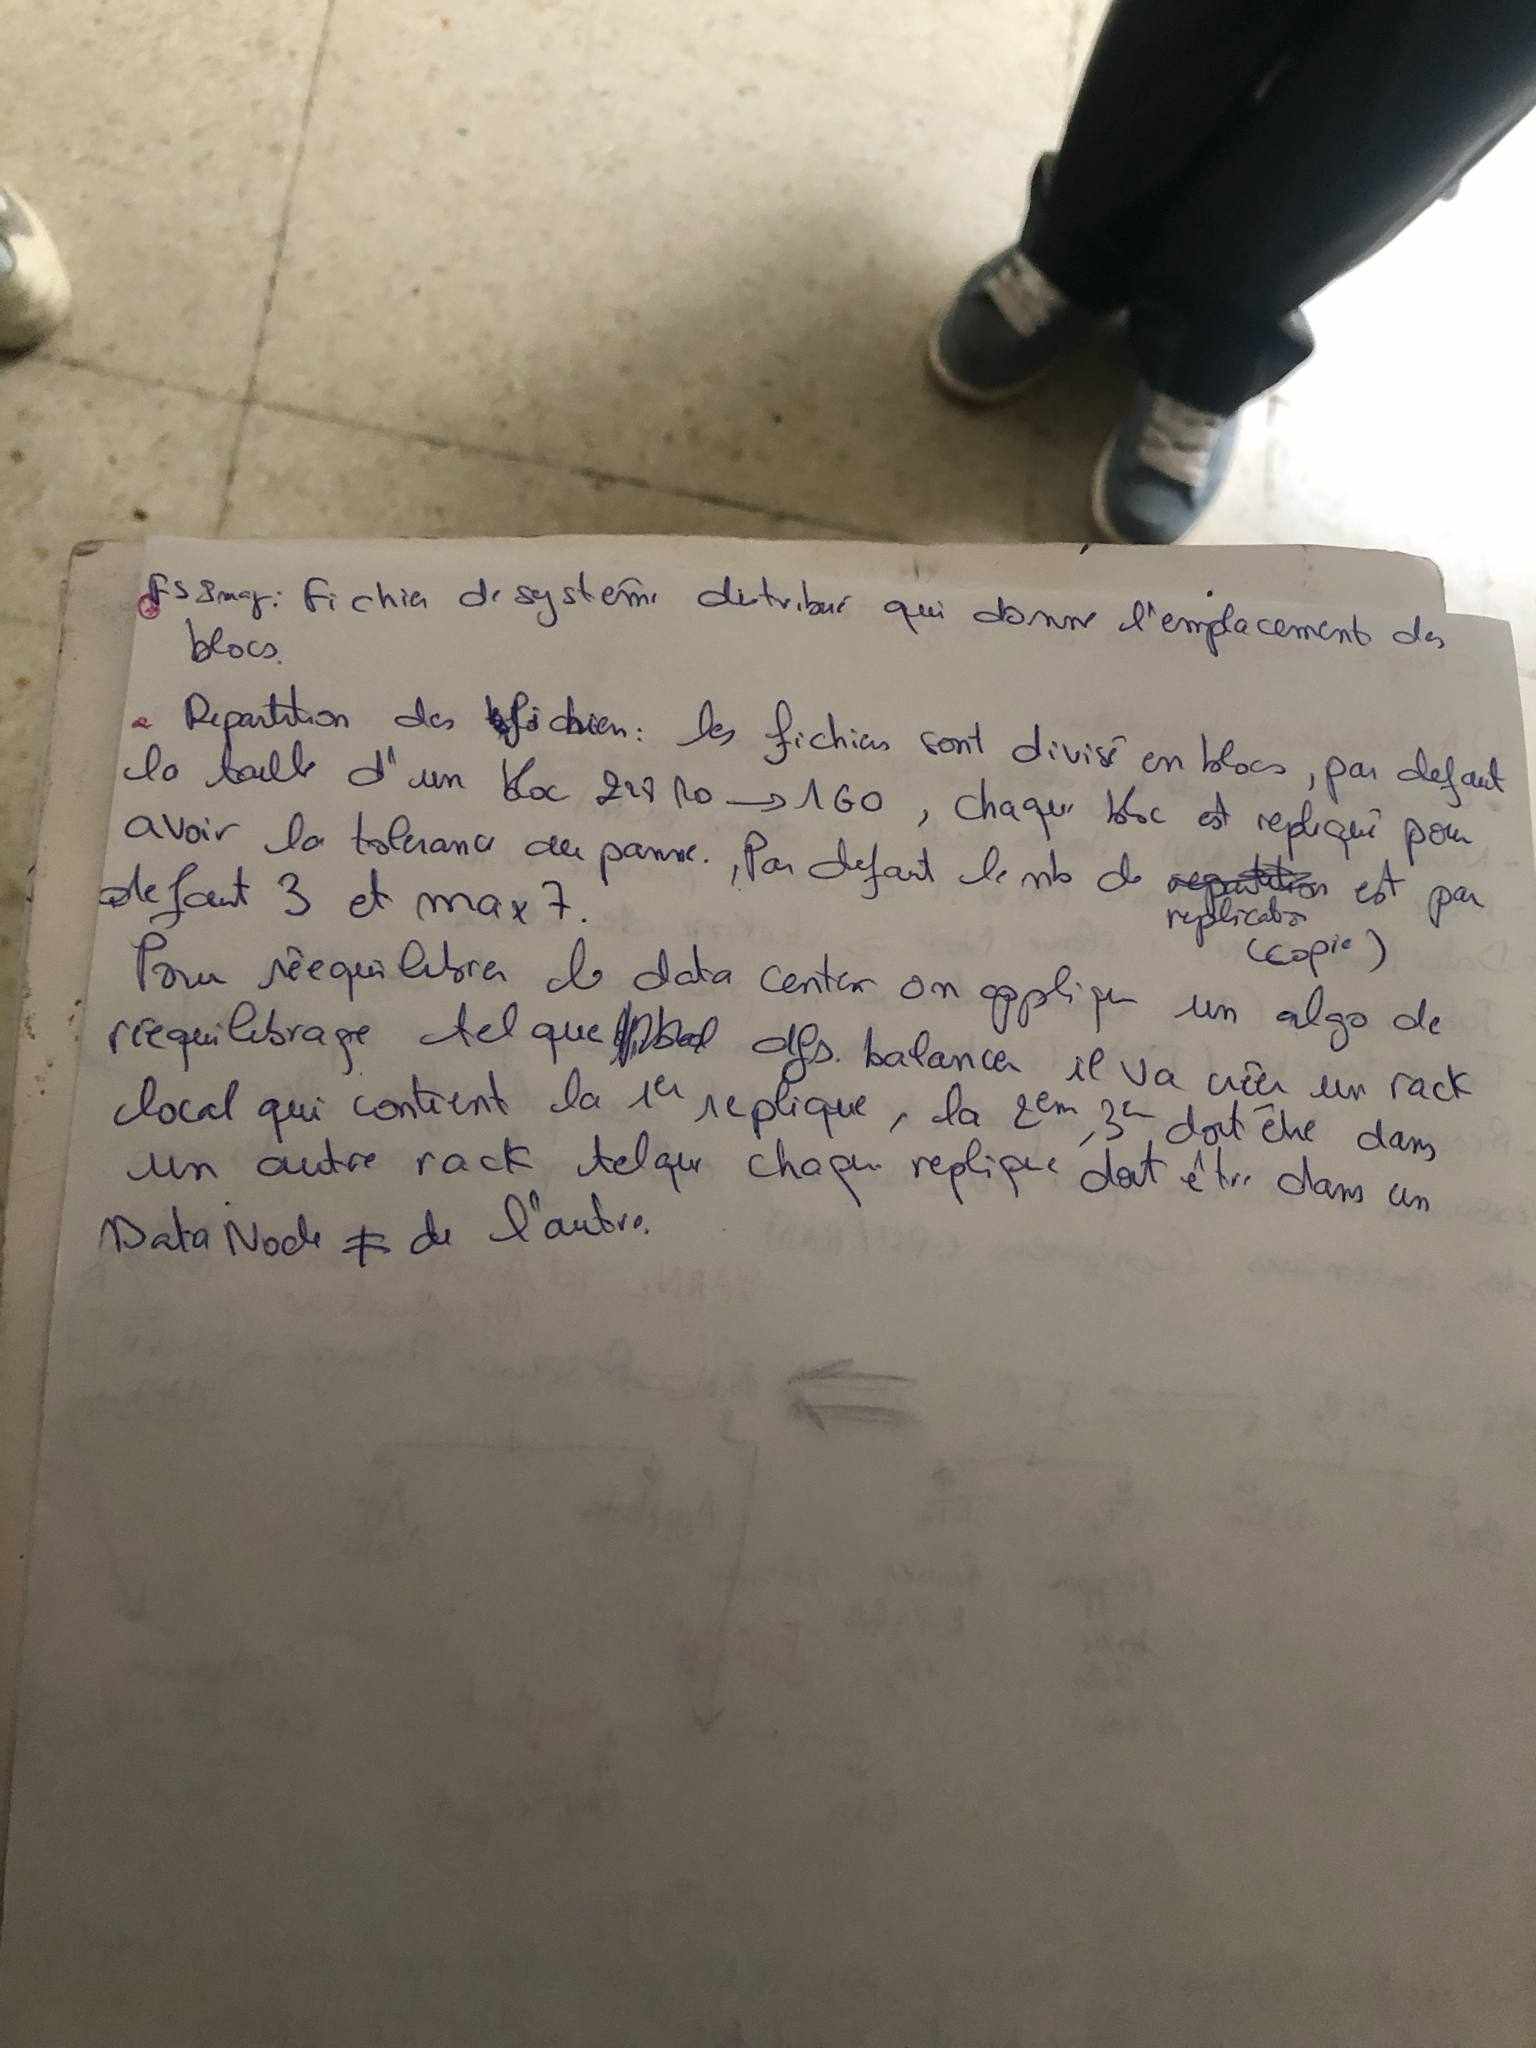 FSImag: Fichier de système distribué qui donne l'emplacement des
blocs.
Repartition des fichier: les fichiers sont divisé en blocs, par defaut
la taille d'un bloc → 1GO, chaque bloc est repliqué pour
avoir la tolerance au panne., Par defaut le nb de repartition est par
replication
(copie)
defaut 3 et max 7.
Pour réequilibrer le data center on applique un algo de
réequilibrage tel que dfs. balancer il va créer un rack
local qui contient la 1er replique, la 2em, 3em doit être dans
un autre rack telque chaque replique doit être dans un
DataNode ≠ de l'autre.